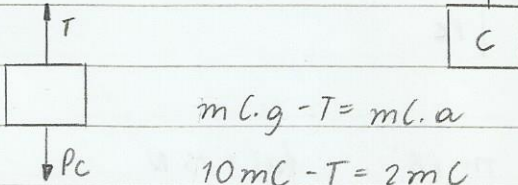 T
C
mC.g - T = mC.a
Pc
10mC - T = 2mC